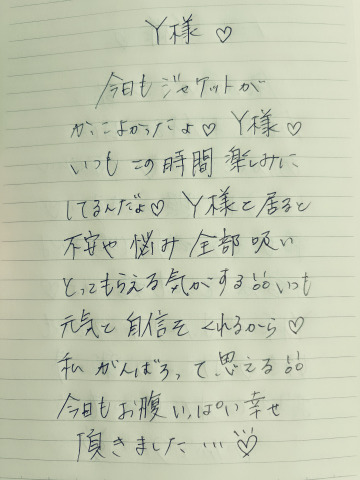 Y様 ♡
今日もジャケットが
かっこよかったよ♡ Y様♡
いつもこの時間楽しみに
してるんだよ♡ Y様と居ると
不安や悩み全部吸い
とってもらえる気がする いつも
元気と自信をくれるから♡
私がんばろって思える
今日もお腹いっぱい幸せ
頂きました…♡